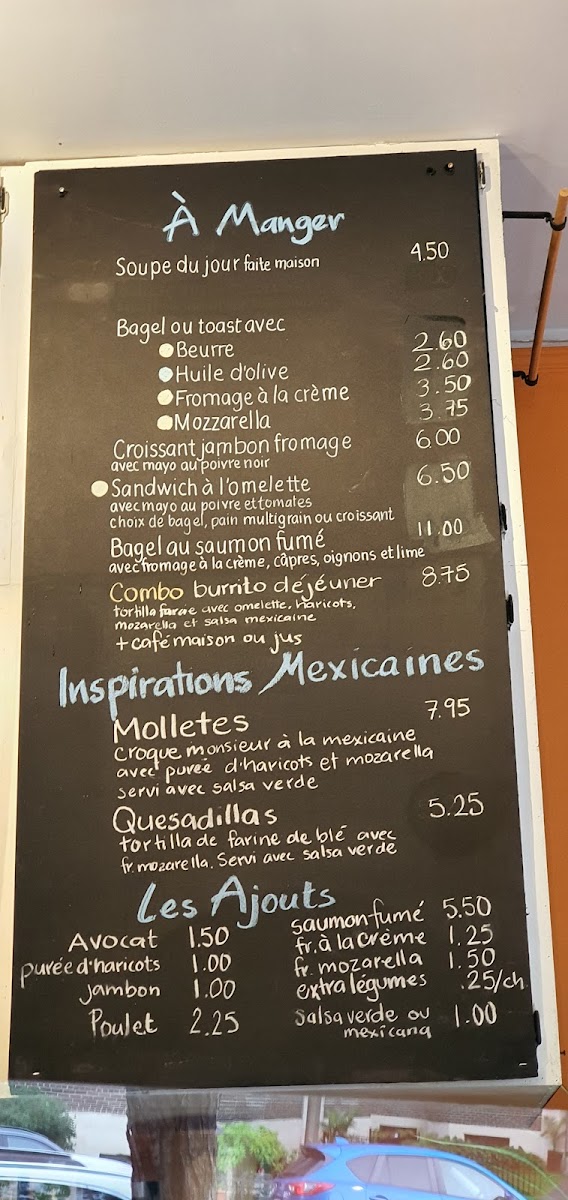 À Manger
Soupe du jour faite maison 4.50
Bagel ou toast avec
Beurre 2.60
Huile d'olive 2.60
Fromage à la crème 3.50
Mozzarella 3.75
Croissant jambon fromage 6.00
avec mayo au poivre noir
Sandwich à l'omelette 6.50
avec mayo au poivre et tomates
choix de bagel, pain multigrain ou croissant
Bagel au saumon fumé 11.00
avec fromage à la crème, câpres, oignons et lime
Combo burrito déjeuner 8.75
tortilla farcie avec omelette, haricots,
mozarella et salsa mexicaine
+ café maison ou jus
Inspirations Mexicaines
Molletes 7.95
croque monsieur à la mexicaine
avec purée d'haricots et mozarella
servi avec salsa verde
Quesadillas 5.25
tortilla de farine de blé avec
fr. mozarella. Servi avec salsa verde
Les Ajouts
Avocat 1.50
purée d'haricots 1.00
jambon 1.00
Poulet 2.25
saumon fumé 5.50
fr. à la crème 1.25
fr. mozarella 1.50
extra légumes .25/ch
Salsa verde ou 1.00
mexicana